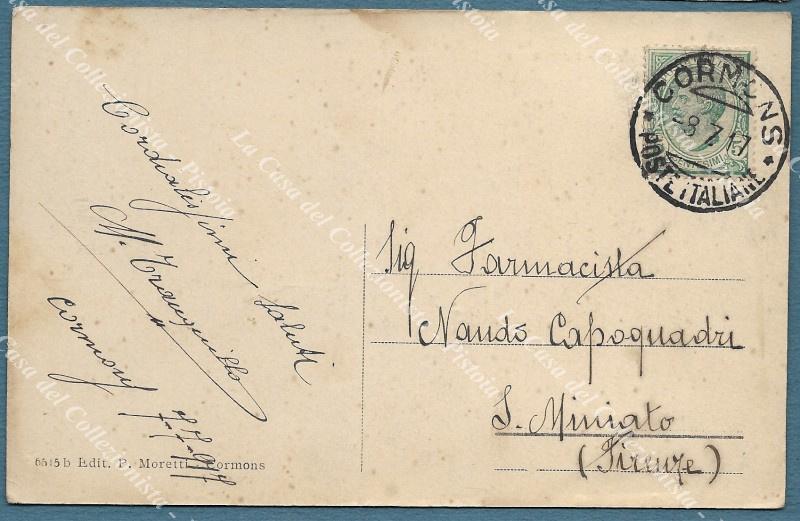 CORMONS
-8.7.17
* POSTE ITALIANE *
Cordialissimi saluti
M. Tranquillo
Cormons 7-7-917
Sig Farmacista
Nando Capoquadri
S. Miniato
(Firenze)
6545b Edit. P. Moretti - Cormons
La Casa del Collezionista - Pistoia